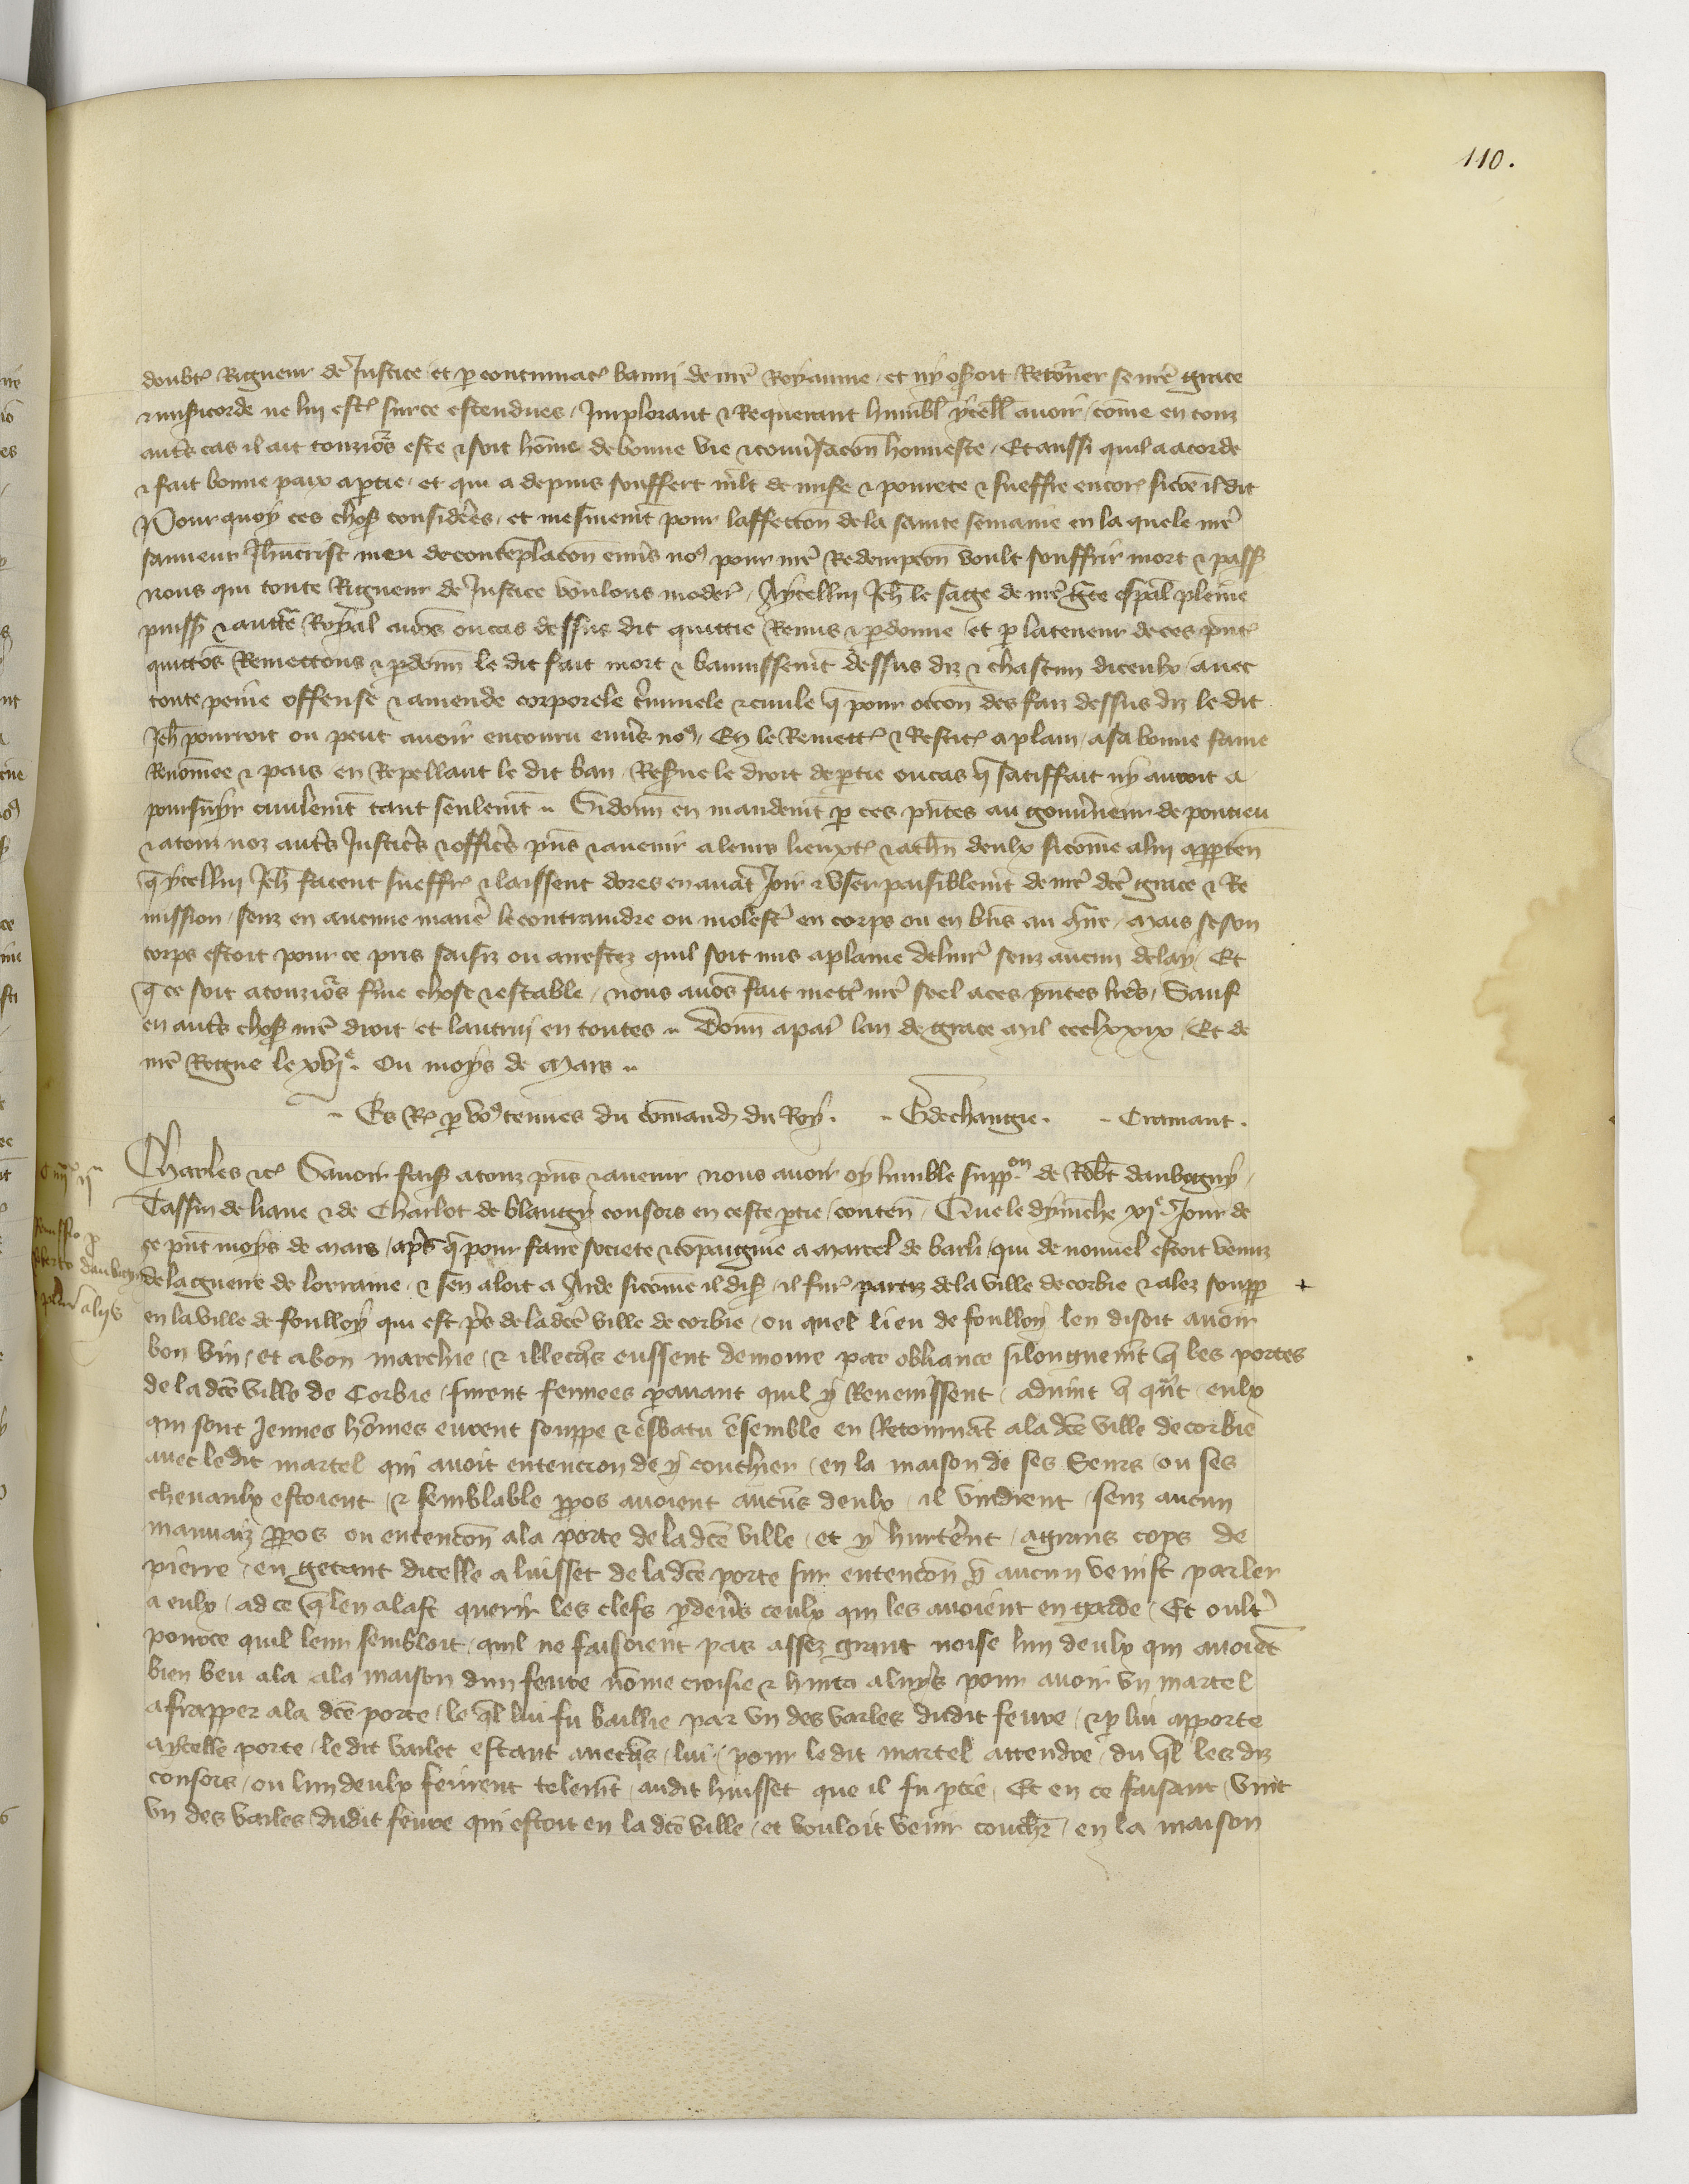 110.
doubt Rigueur de Justice et p contumac banni de nre Royaume et ny osoit Retorner se nre grace
& misicorde ne lui est sur ce estendues Implorant & Requerant humbl ycell avoir come en touz
auts cas il ait touziors este & soit home de bonne vie & convsacon honneste Et aussi quil a acorde
& fait bonne paix a ptie et qui a depuis souffert mlt de mise & povrete & sueffre encor sicoe il dit
Pour quoy ces chos considerees et mesmemt pour laffeccon de la sainte semaine en la quele nre
sauveur Jhucrist meu de contemplacon envs nos pour nre Redempcon voult souffrir mort & pass
nous qui toute Rigueur de Justice voulons moder A ycellui Jeh le sage de nre gce espal pleine
puiss & aucte Royal avos ou cas dessus dit quittie Remis & pdonne et p la teneur de ces pnt
quittos Remettons & pdonn le dit fait mort & bannissemt dessus diz & chascun diceulx avec
toute peine offense & amende corporele criminele & civile q pour occon des faiz dessus diz le dit
Jeh pourroit ou peut avoir encouru envs nos Et le Remett & Restit a plain a sa bonne fame
Renomee & pais en Repellant le dit ban Resve le droit de ptie ou cas q satiffait ny auroit a
poursuyr civilemt tant seulemt Si donn en mandemt p ces pntes au gouvneur de pontieu
& a touz noz auts Justics & offics pns & avenir a leurs lieuxt & a chn deulx sicome a lui appten
q ycellui Jeh facent sueffr & laissent dores en avat Joir & user paisiblemt de nre dce grace & Re
mission senz en aucune mane le contraindre ou molest en corps ou en bns au cotre Mais se son
corps estoit pour ce pris saisiz ou arrestez quil soit mis a plaine delivr senz aucun delay Et
q ce soit a touziors fme chose & estable nous avos fait mett nre seel a ces pntes lres Sauf
en auts chos nre droit et lautrui en toutes Donn a par lan de grace mil ccclxxix Et de
nre Regne le xvie ou moys de Mars
Es R p vos tenues du comand du Roy. Gdechangie. Cramant.
Charles &c Savoir fais a touz pns & avenir nous avoir oy humble suppon de Robt daubegny
Tassin de liane & de Charlot de blangy consors en ceste ptie conten Que le dymche xie Jour de
ce pnt moys de mars aps q pour faire societe & copaignie a Martel de barli qui de nouvel estoit venuz
de la guerre de lorraine & sen aloit a Arde sicome il dis il fur partiz de la ville de corbie & alez soupp
en la ville de foulloy qui est ps de la dce ville de corbie ou quel lieu de foulloy len disoit avoir
bon vin et a bon marchie & illecqs eussent demoure par obliance si longuemt q les portes
de la dce ville de Corbie furent fermees pavant quil y Revenissent advint q qnt eulx
qui sont Jeunes homes eurent souppe & esbatu esemble en Retournat a la dce ville de corbie
avec le dit martel qui avoit entencion de y couchier en la maison de ses Seurs ou ses
chevaulx estoient & semblable ppos avoient aucus deulx il vindrent senz aucun
mauvaiz ppos ou entencon a la porte de la dce ville et y hurterent a grans cops de
pierre en getant dicelle a luisset de la dce porte sur entencon q aucun venist parler
a eulx ad ce q len alast querir les clefs pdevs ceulx qui les avoient en garde Et oultr
pource quil leur sembloit quil ne faisoient pas assez grant noise lun deulx qui avoiet
bien beu ala a la maison dun fevre nome croisie & hurta a luys pour avoir un martel
a frapper a la dce porte le ql lui fu baillie par un des varles dudit fevre & p lui apporte
a ycelle porte le dit varlet estant avecqs lui pour le dit martel attendre du ql les diz
consors ou lun deulx ferirent telemt audit huisset que il fu pcie Et en ce faisant vint
un des varles dudit fevre qui estoit en la dce ville et vouloit venir couch en la maison
Remissio p
Roberto daubegny
plur aliis